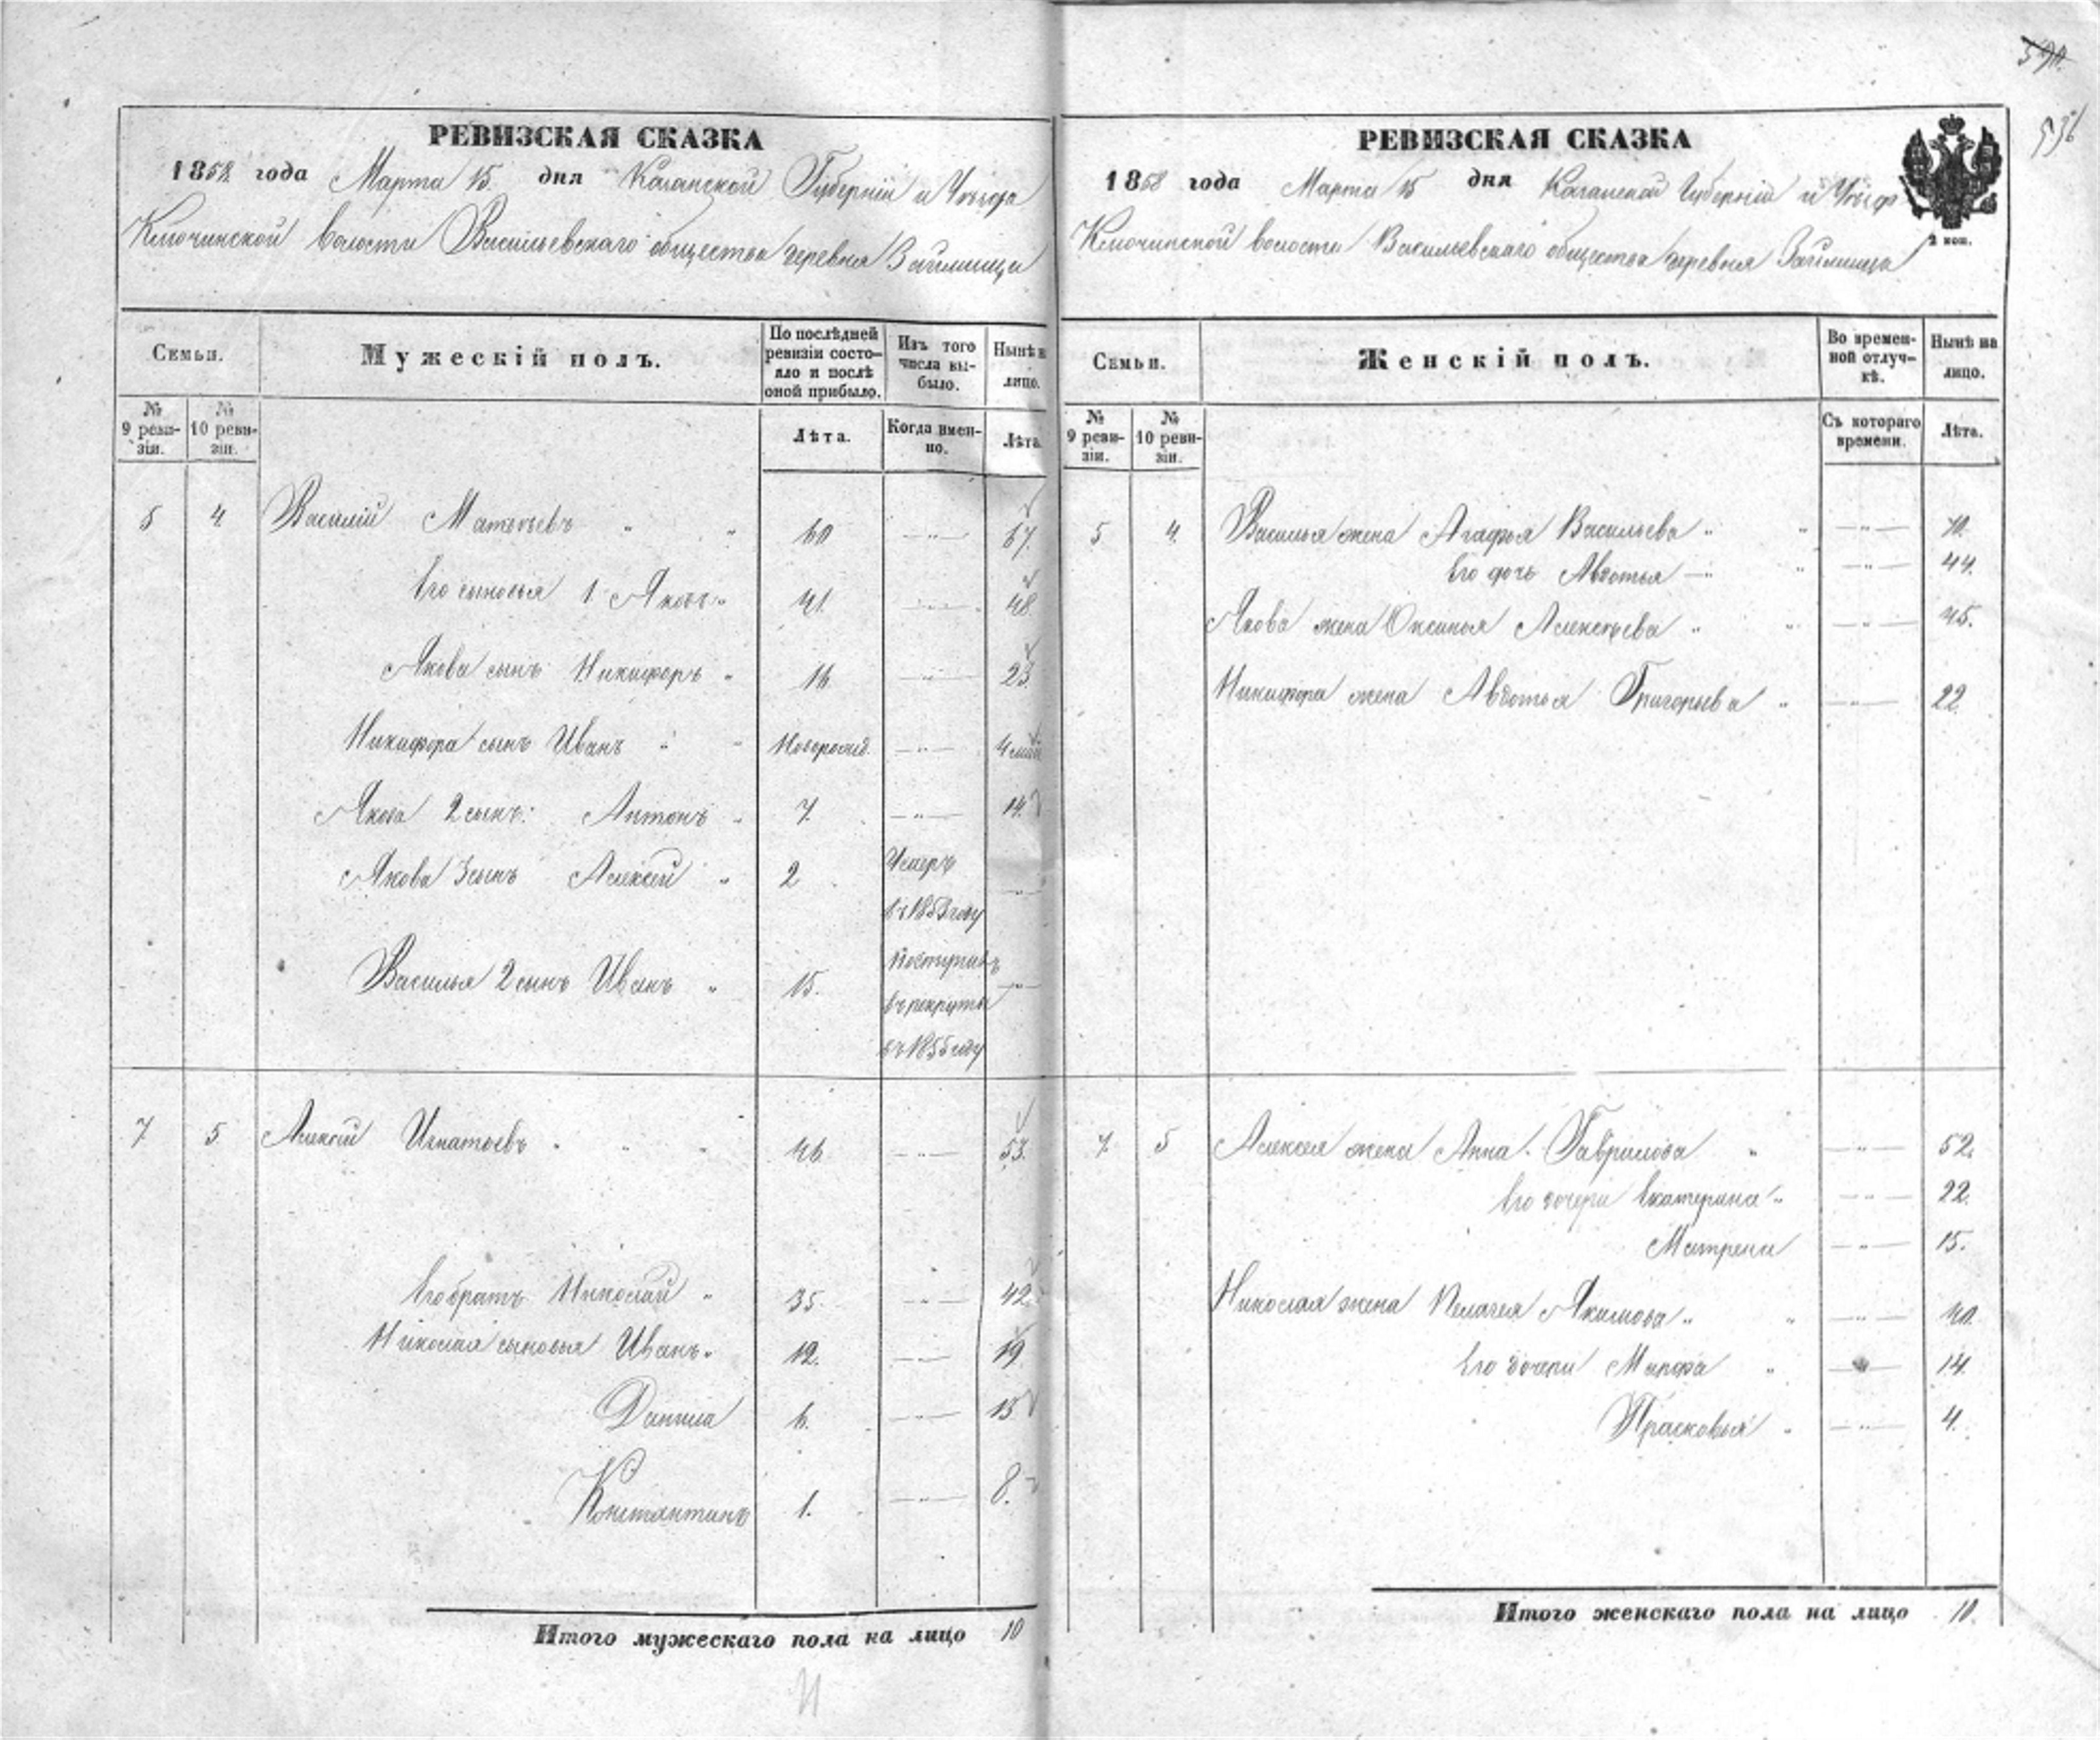 59А.
536
РЕВИЗСКАЯ СКАЗКА
1858 года Марта 15. дня Казанской Губерніи и Уѣзда
Ключинской волости Васильевскаго общества деревня Займища
Семьи.
Мужескій полъ.
По послѣдней ревизіи состояло и послѣ оной прибыло.
Изъ того числа выбыло.
Нынѣ на лицо.
№ 9 ревизіи.
№ 10 ревизіи.
Лѣта.
Когда именно.
Лѣта.
5 4 Василій Матвѣевъ 60 67.
Его сыновья 1. Яковъ 41. 48.
Якова сынъ Никифоръ 16. 23.
Никифора сынъ Иванъ Новорожд.
Якова 2 сынъ: Антонъ 7. 14.
Якова 3 сынъ Алексѣй 2 Умеръ въ 1853 году
Василья 2 сынъ Иванъ 15. поступилъ въ рекруты въ 1855 году
7 5 Алексѣй Игнатьевъ 46. 53.
Его братъ Николай 35. 42.
Николая сыновья Иванъ 12. 19
Данила 6. 13
Константинъ 1. 8.
Итого мужескаго пола на лицо 10
РЕВИЗСКАЯ СКАЗКА
1858 года Марта 15 дня Казанской Губерніи и Уѣзда
Ключинской волости Васильевскаго общества деревня Займища
2 коп.
Семьи.
Женскій полъ.
Во временной отлучкѣ.
Нынѣ на лицо.
№ 9 ревизіи.
№ 10 ревизіи.
Съ котораго времени.
Лѣта.
5 4. Василья жена Агафья Васильева 70.
Его дочь Авдотья 44.
Якова жена Оксинья Алексѣева 45.
Никифора жена Авдотья Григорьева 22.
7. 5 Алексѣя жена Анна Гаврилова 52.
Его дочери Екатерина 22.
Матрена 15.
Николая жена Пелагея Якимова 40.
Его дочери Марфа 14.
Прасковья 4.
Итого женскаго пола на лицо 10.